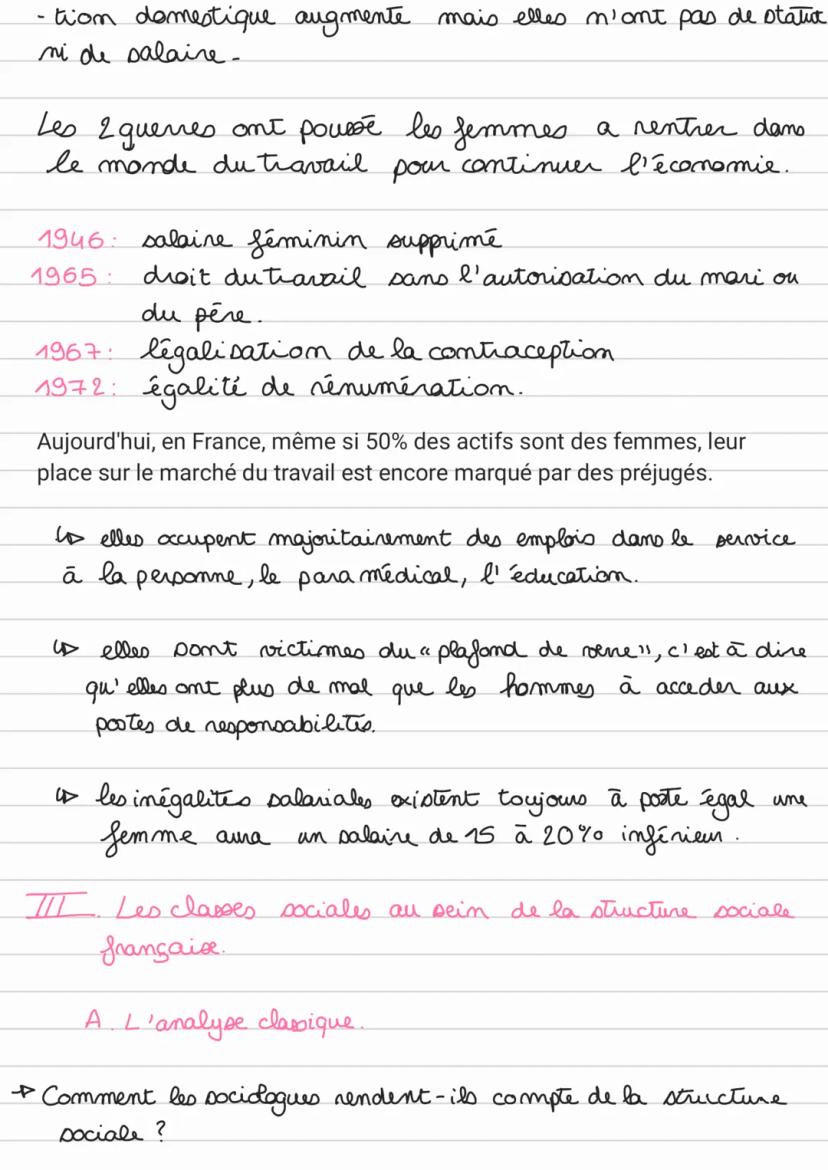 -tion domestique augmente mais elles n'ont pas de statut
ni de salaire.
Les 2 guerres ont poussé les femmes a rentrer dans
le monde du travail pour continuer l'économie.
1946: salaire féminin supprimé
1965: droit du travail sans l'autorisation du mari ou
du père.
1967: légalisation de la contraception
1972: égalité de rénumération.
Aujourd'hui, en France, même si 50% des actifs sont des femmes, leur
place sur le marché du travail est encore marqué par des préjugés.
↳ elles occupent majoritairement des emplois dans le service
à la personne, le para médical, l'éducation.
↳ elles sont victimes du « plafond de verre », c'est à dire
qu'elles ont plus de mal que les hommes à acceder aux
postes de responsabilités.
↳ les inégalités salariales existent toujours à poste égal une
femme aura un salaire de 15 à 20% inférieur.
III. Les classes sociales au sein de la structure sociale
française.
A. L'analyse classique.
→ Comment les sociologues rendent-ils compte de la structure
sociale ?